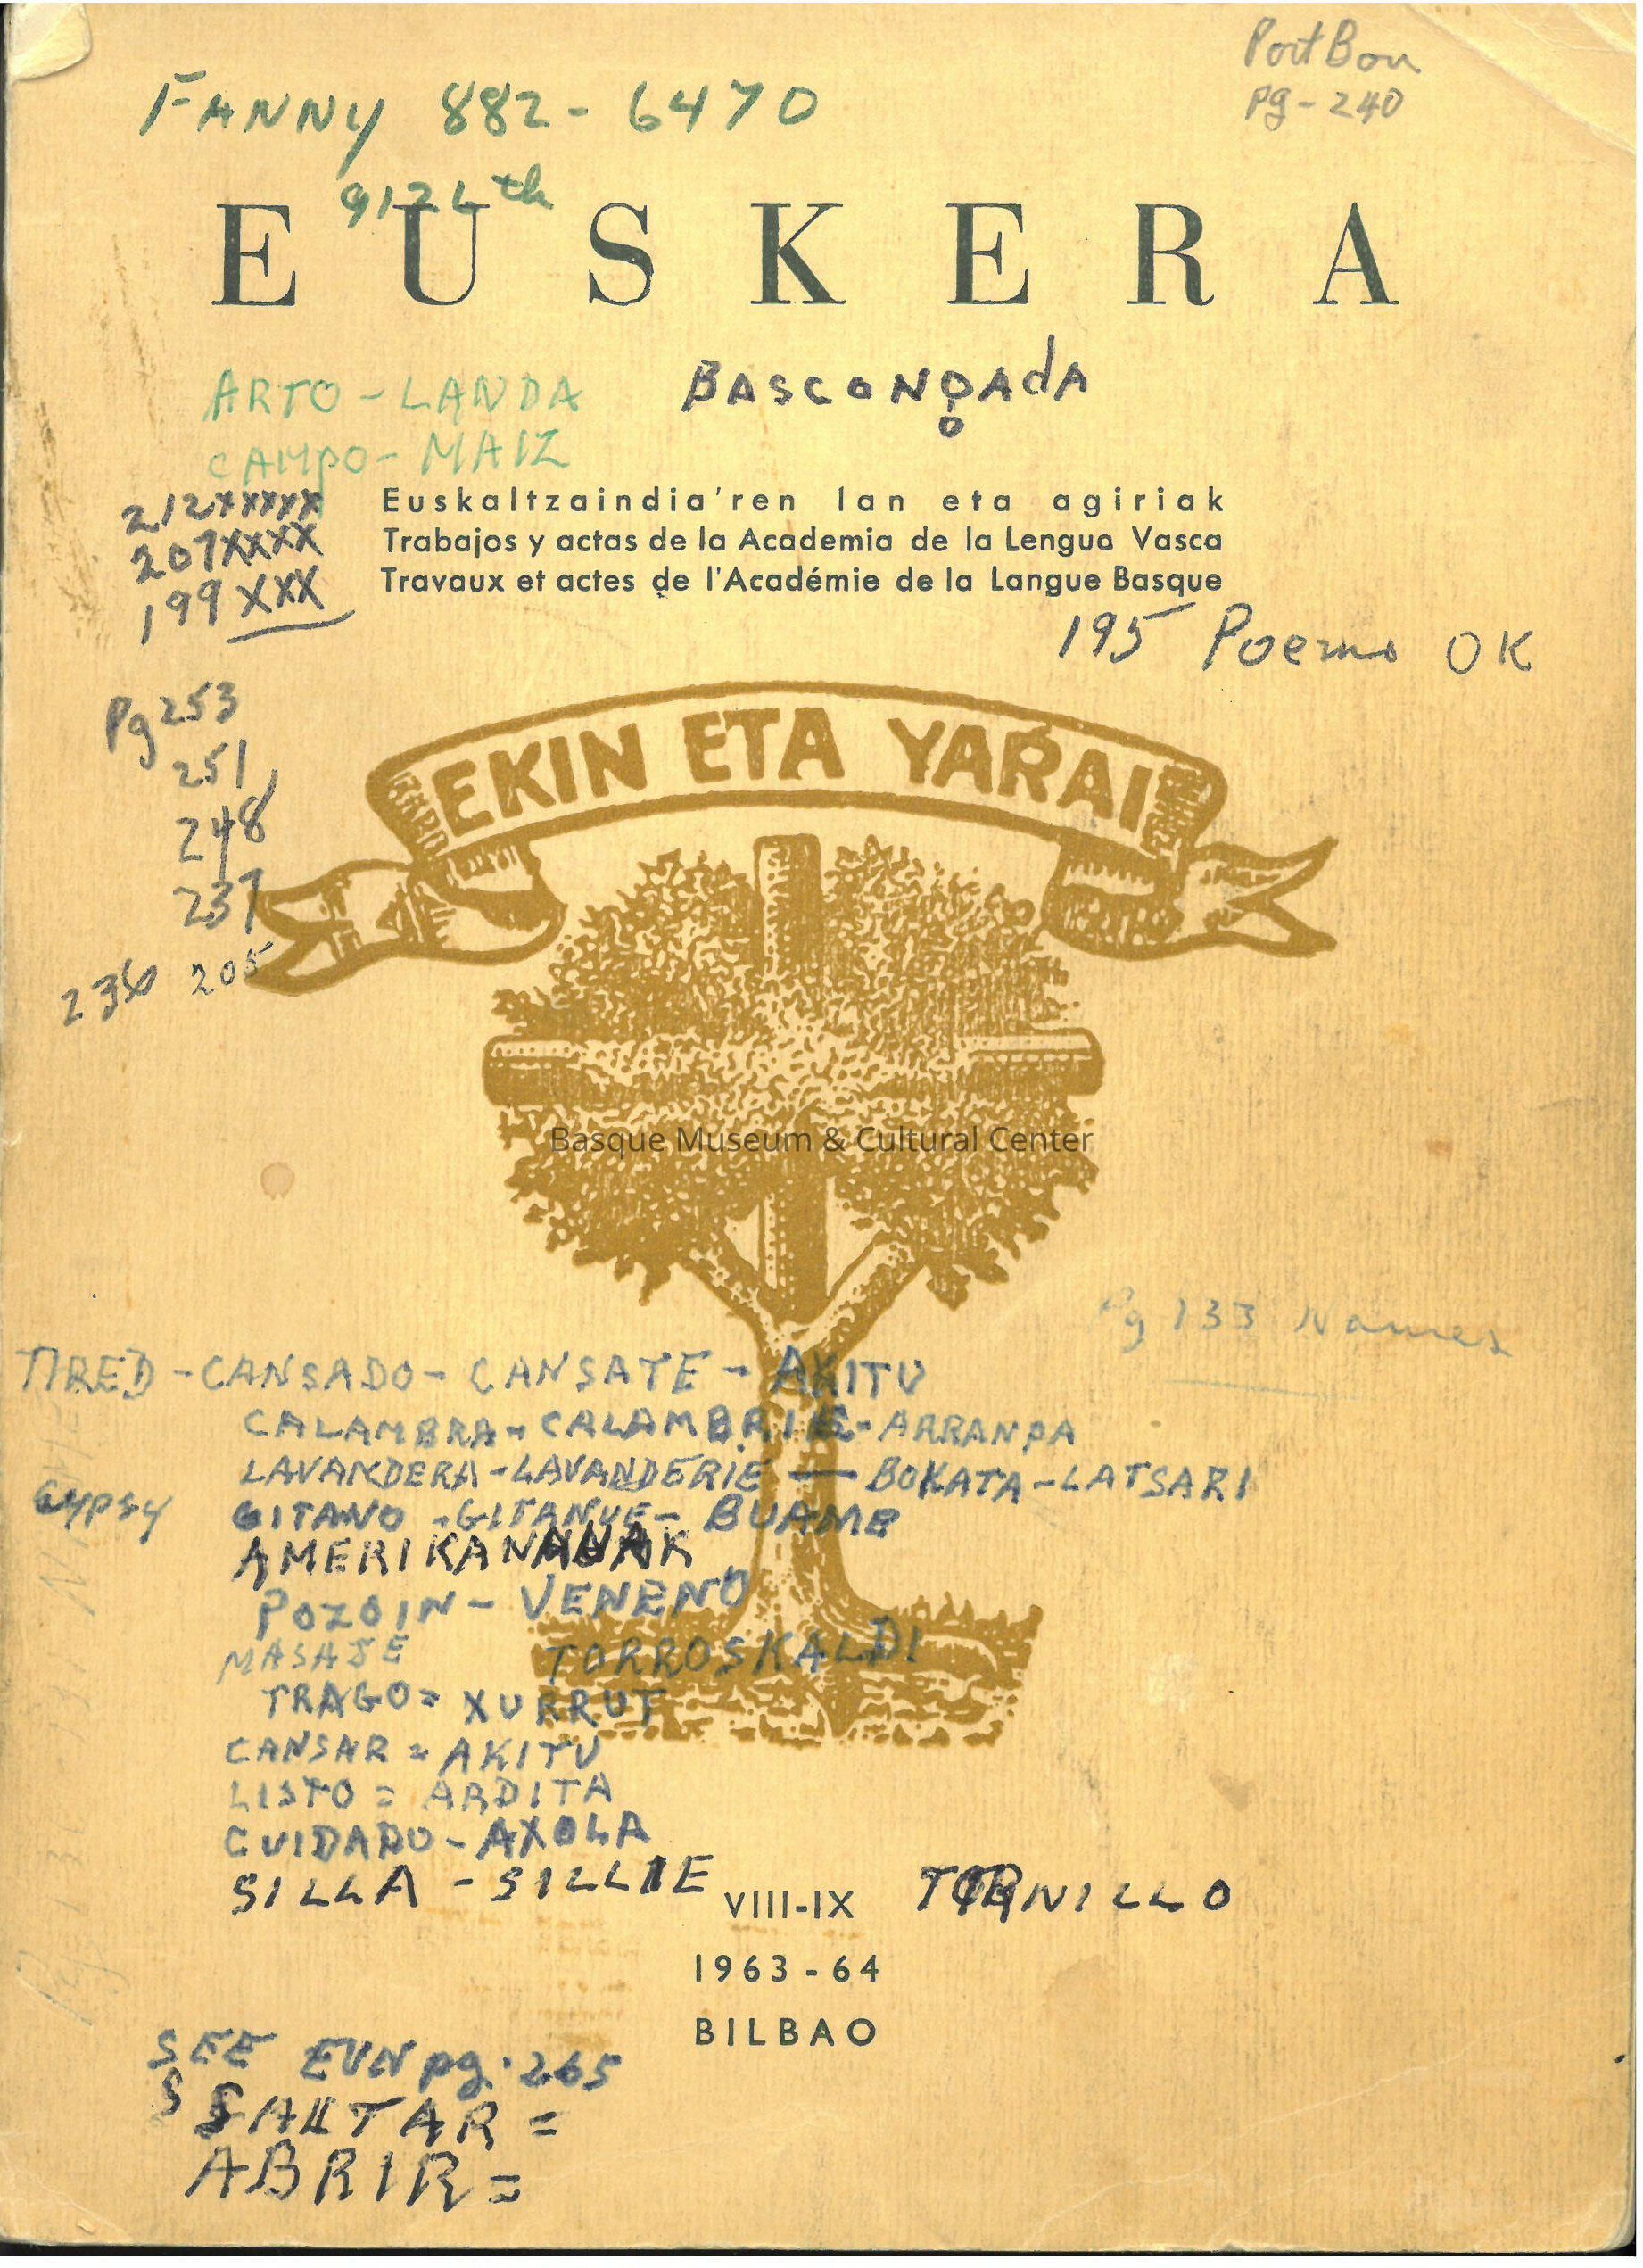 Port Bou
pg - 240
FANNY 882-6470
E U S K E R A
ARTO - LANDA
BASCONGADA
CAMPO - MAIZ
212XXXXX
207XXXX
199XXX
Euskaltzaindia'ren lan eta agiriak
Trabajos y actas de la Academia de la Lengua Vasca
Travaux et actes de l'Académie de la Langue Basque
195 Poems OK
Pg 253
251
248
237
205
EKIN ETA YARAI
Basque Museum & Cultural Center
Pg 133 Names
TIRED - CANSADO - CANSATE - AKITU
CALAMBRA - CALAMBRIE - ARRANPA
LAVANDERA - LAVANDERIE — BOKATA - LATSARI
Gypsy GITANO - GITANUE - BUAME
POZOIN - VENENO
MASAJE TORROSKALDI
TRAGO = XURRUT
CANSAR = AKITU
LISTO = ARDITA
CUIDADO - AXOLA
SILLA - SILLIE
VIII-IX
TORNILLO
1963 - 64
BILBAO
SEE EUN pg. 265
SALTAR =
ABRIR =